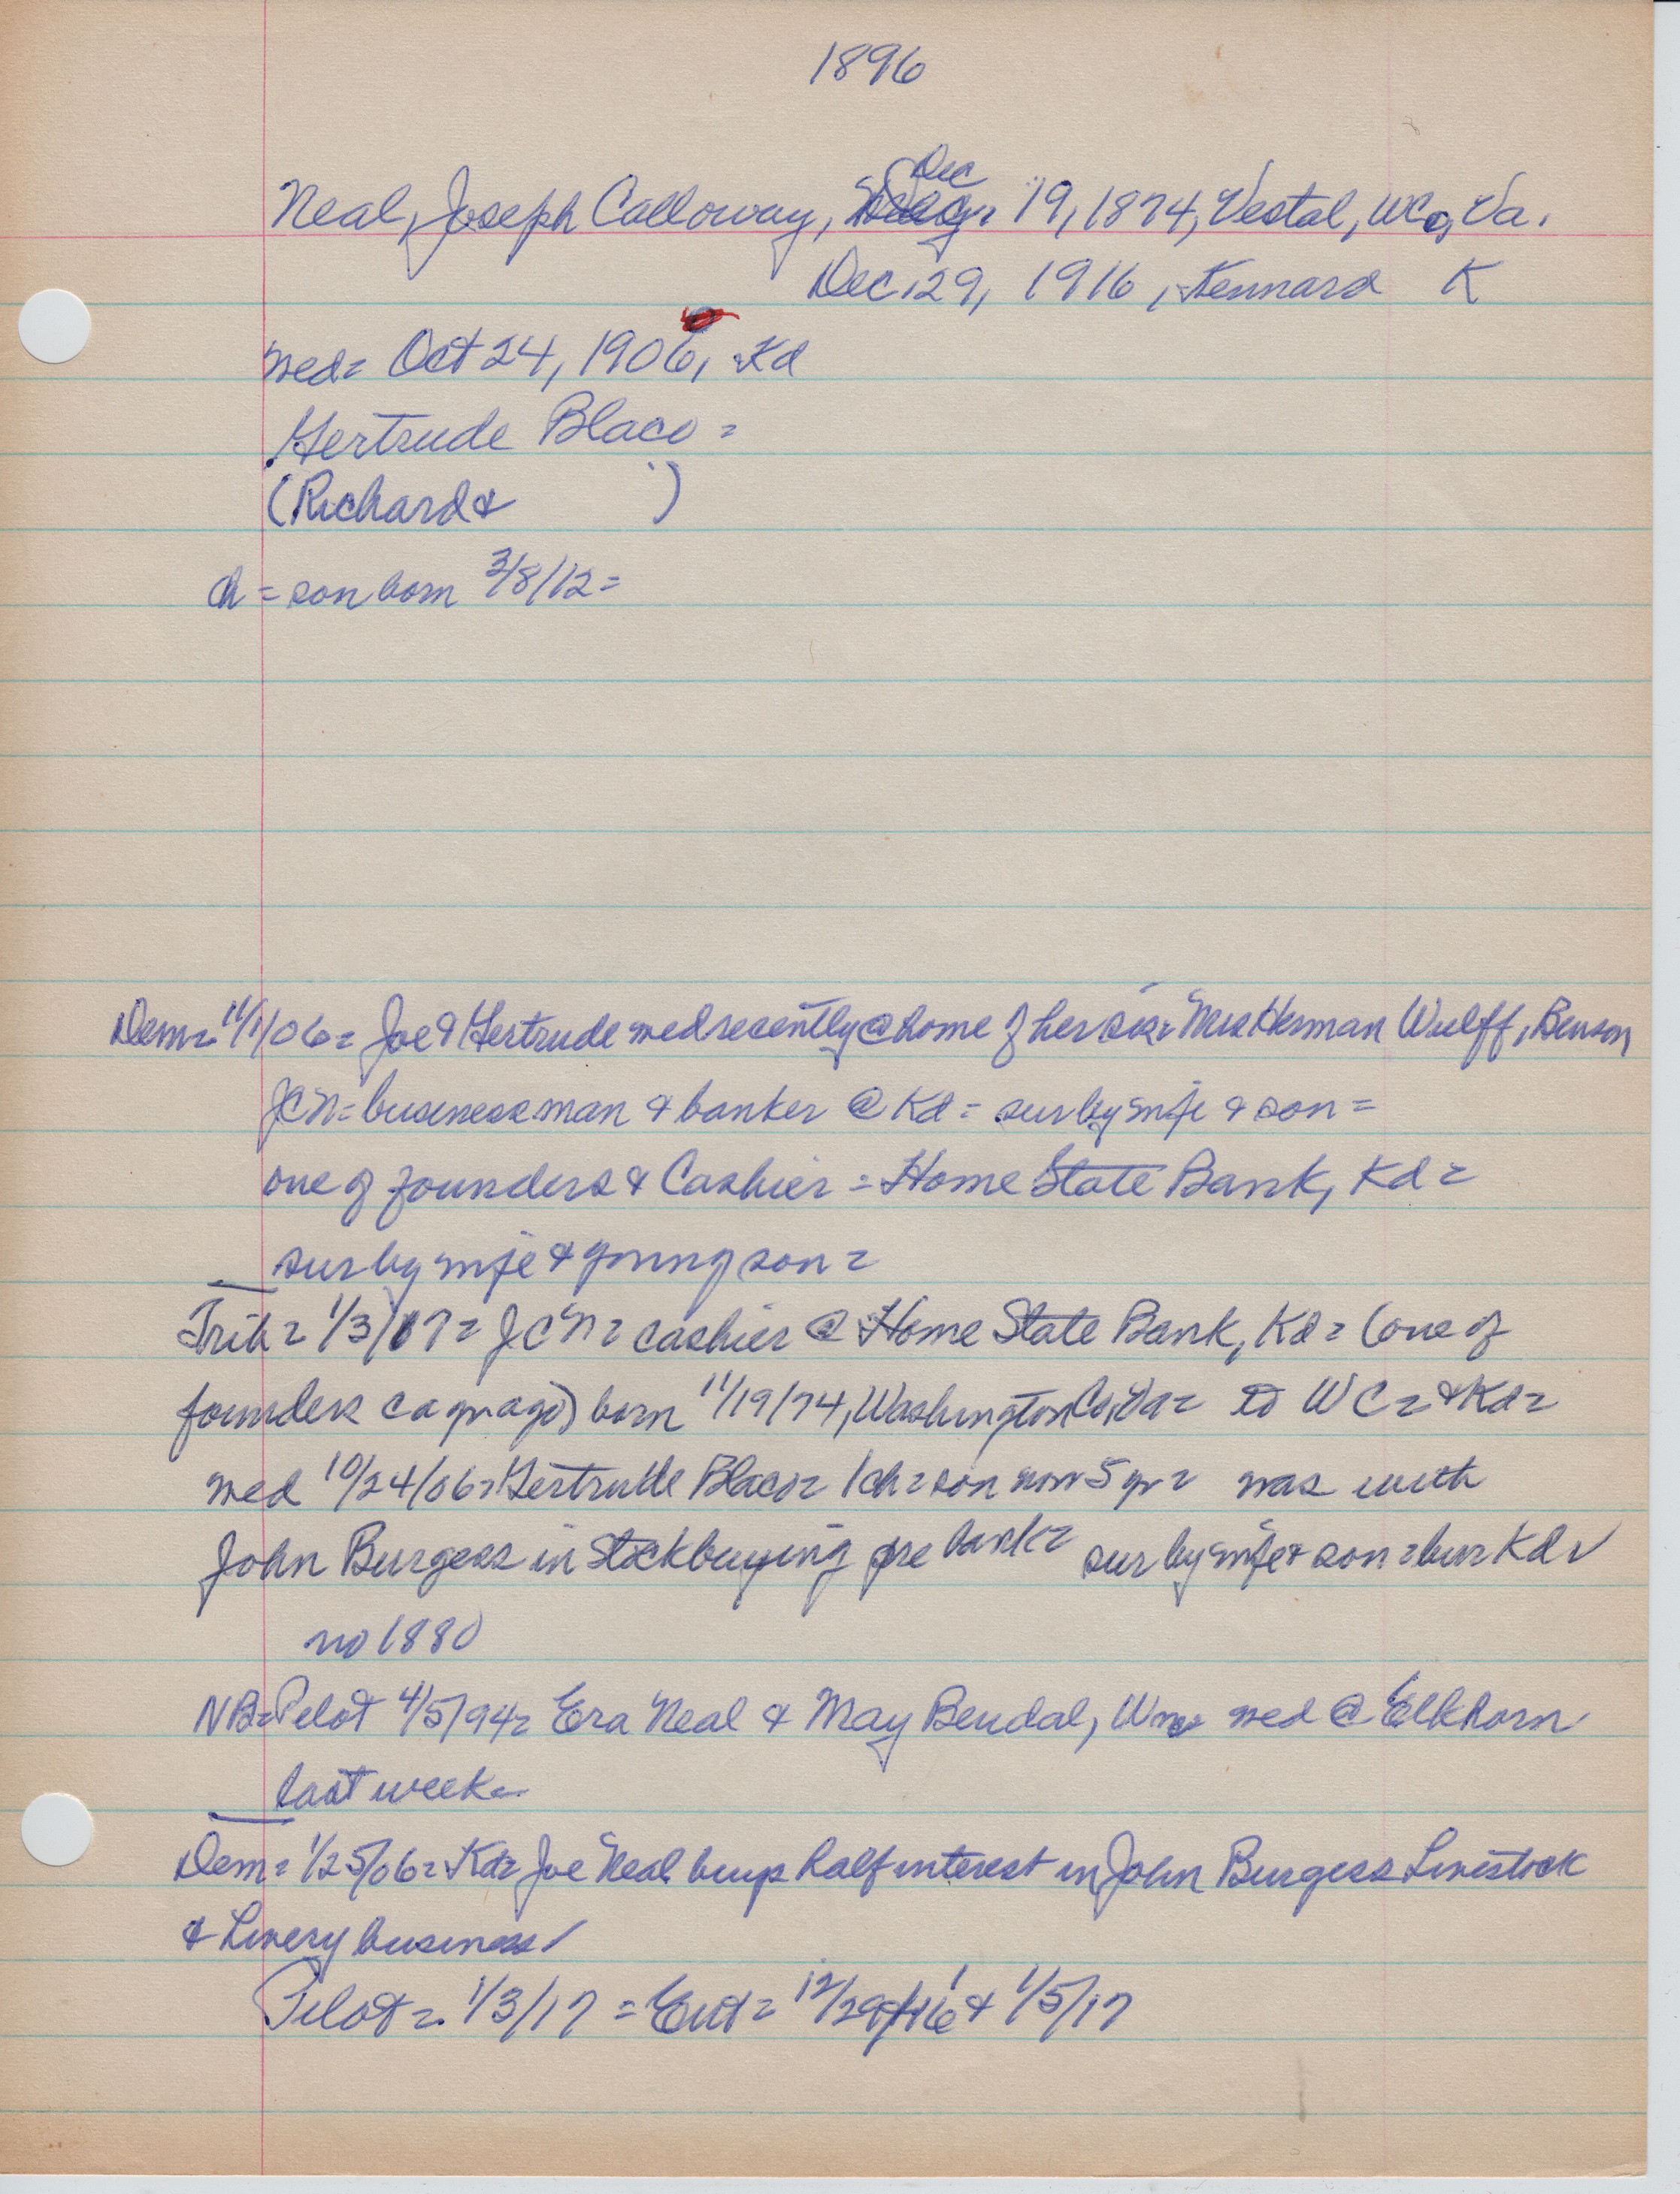 1896
Dec
Neal, Joseph Calloway, 19, 1874, Vestal, WCo, Va.
Dec 29, 1916, Kennard K
wed= Oct 24, 1906, Kd
Gertrude Blaco=
(Richard & )
ch = son born 3/8/12=
Dem= 11/1/06= Joe & Gertrude wed recently @ home of her sis= Mrs Herman Wulff, Benson
JCN= businessman & banker @ Kd= sur by wife & son=
one of founders & Cashier = Home State Bank, Kd=
sur by wife & young son=
Trib= 1/3/17= JCN= cashier @ Home State Bank, Kd= (one of
founders ca yr ago) born 11/19/74, Washington Co, Va= to WC= & Kd=
wed 10/24/06= Gertrude Blaco= 1 ch= son now 5 yr= was with
John Burgess in stockbuying pre bank= sur by wife & son= bur Kd
no 1880
NB= Pilot 4/5/94= Era Neal & May Bendal, wed @ Elkhorn
last week=
Dem= 1/25/06= Kd= Joe Neal buys half interest in John Burgess Livestock
& Livery business
Pilot= 1/3/17 = Ent= 12/29/16 & 1/5/17